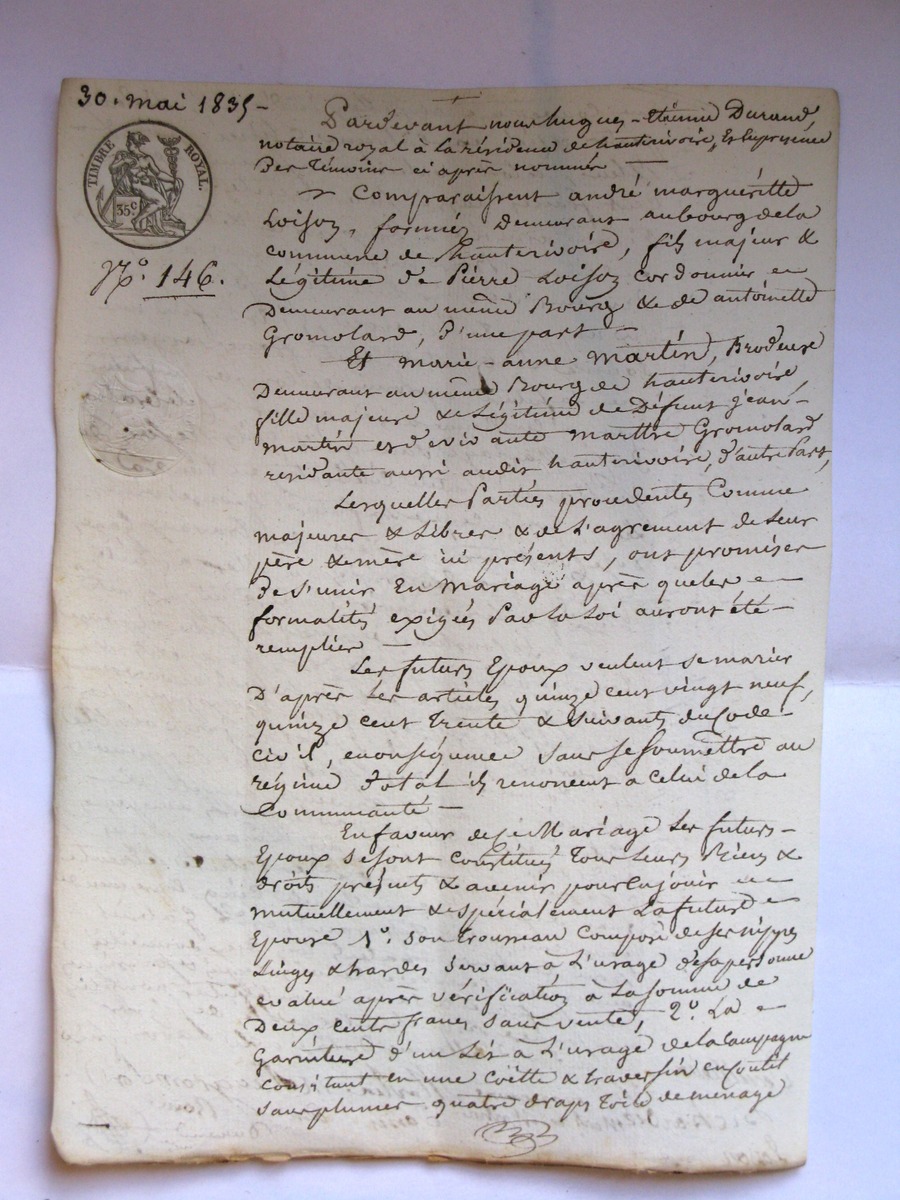 30. mai 1835 -
TIMBRE ROYAL.
35c
N.o 146.
Pardevant nous hugues - Etiènne Durand,
notaire royal à la résidence de hauterivoire, Et En présence
Des Témoins ci après nommés —
Comparaissent andré marguéritte
Loison, fermier Demeurant au bourg de la
commune de hauterivoire, fils majeur &
Légitime de Pierre Loison cordonnier
Demeurant au même Bourg & de antoinette
Gromolard, D'une part —
Et marie - anne martin, Brodeuse
Demeurant au même Bourg de hauterivoire,
fille majeure & Légitime de Défunt jean -
martin et de vivante marthe Gromolard
residante aussi audit hauterivoire, D'autre Part,
Lesquelles Parties procedentes Comme
majeures & Libres & de L'agrement de Leur
père & mère ici présents, ont promises
De s'unir En Mariage après que les
formalités exigées Par la Loi auront été -
remplies —
Les futurs Epoux veulent se marier
D'après Les articles quinze cent vingt neuf,
quinze cent Trente & suivants du Code
civil, en conséquence sans se soumettre au
régime Dotal ils renoncent a celui de la
Communauté —
En faveur de ce Mariage Les futurs -
Epoux se sont Constitués Tous Leurs Biens &
droits présents & avenir pour En jouir
mutuellement & spécialement La future
Epouse 1o. son trousseau Composé de ses nippes
Linges & hardes servant à L'usage de sa personne
evalué après vérification à La somme de
Deux cents francs sans vente, 2o. La
Garniture d'un Lit à L'usage de la Campagne
consistant en une Coëtte & traversin en Coutil
sans plumes quatre draps Toile de menage